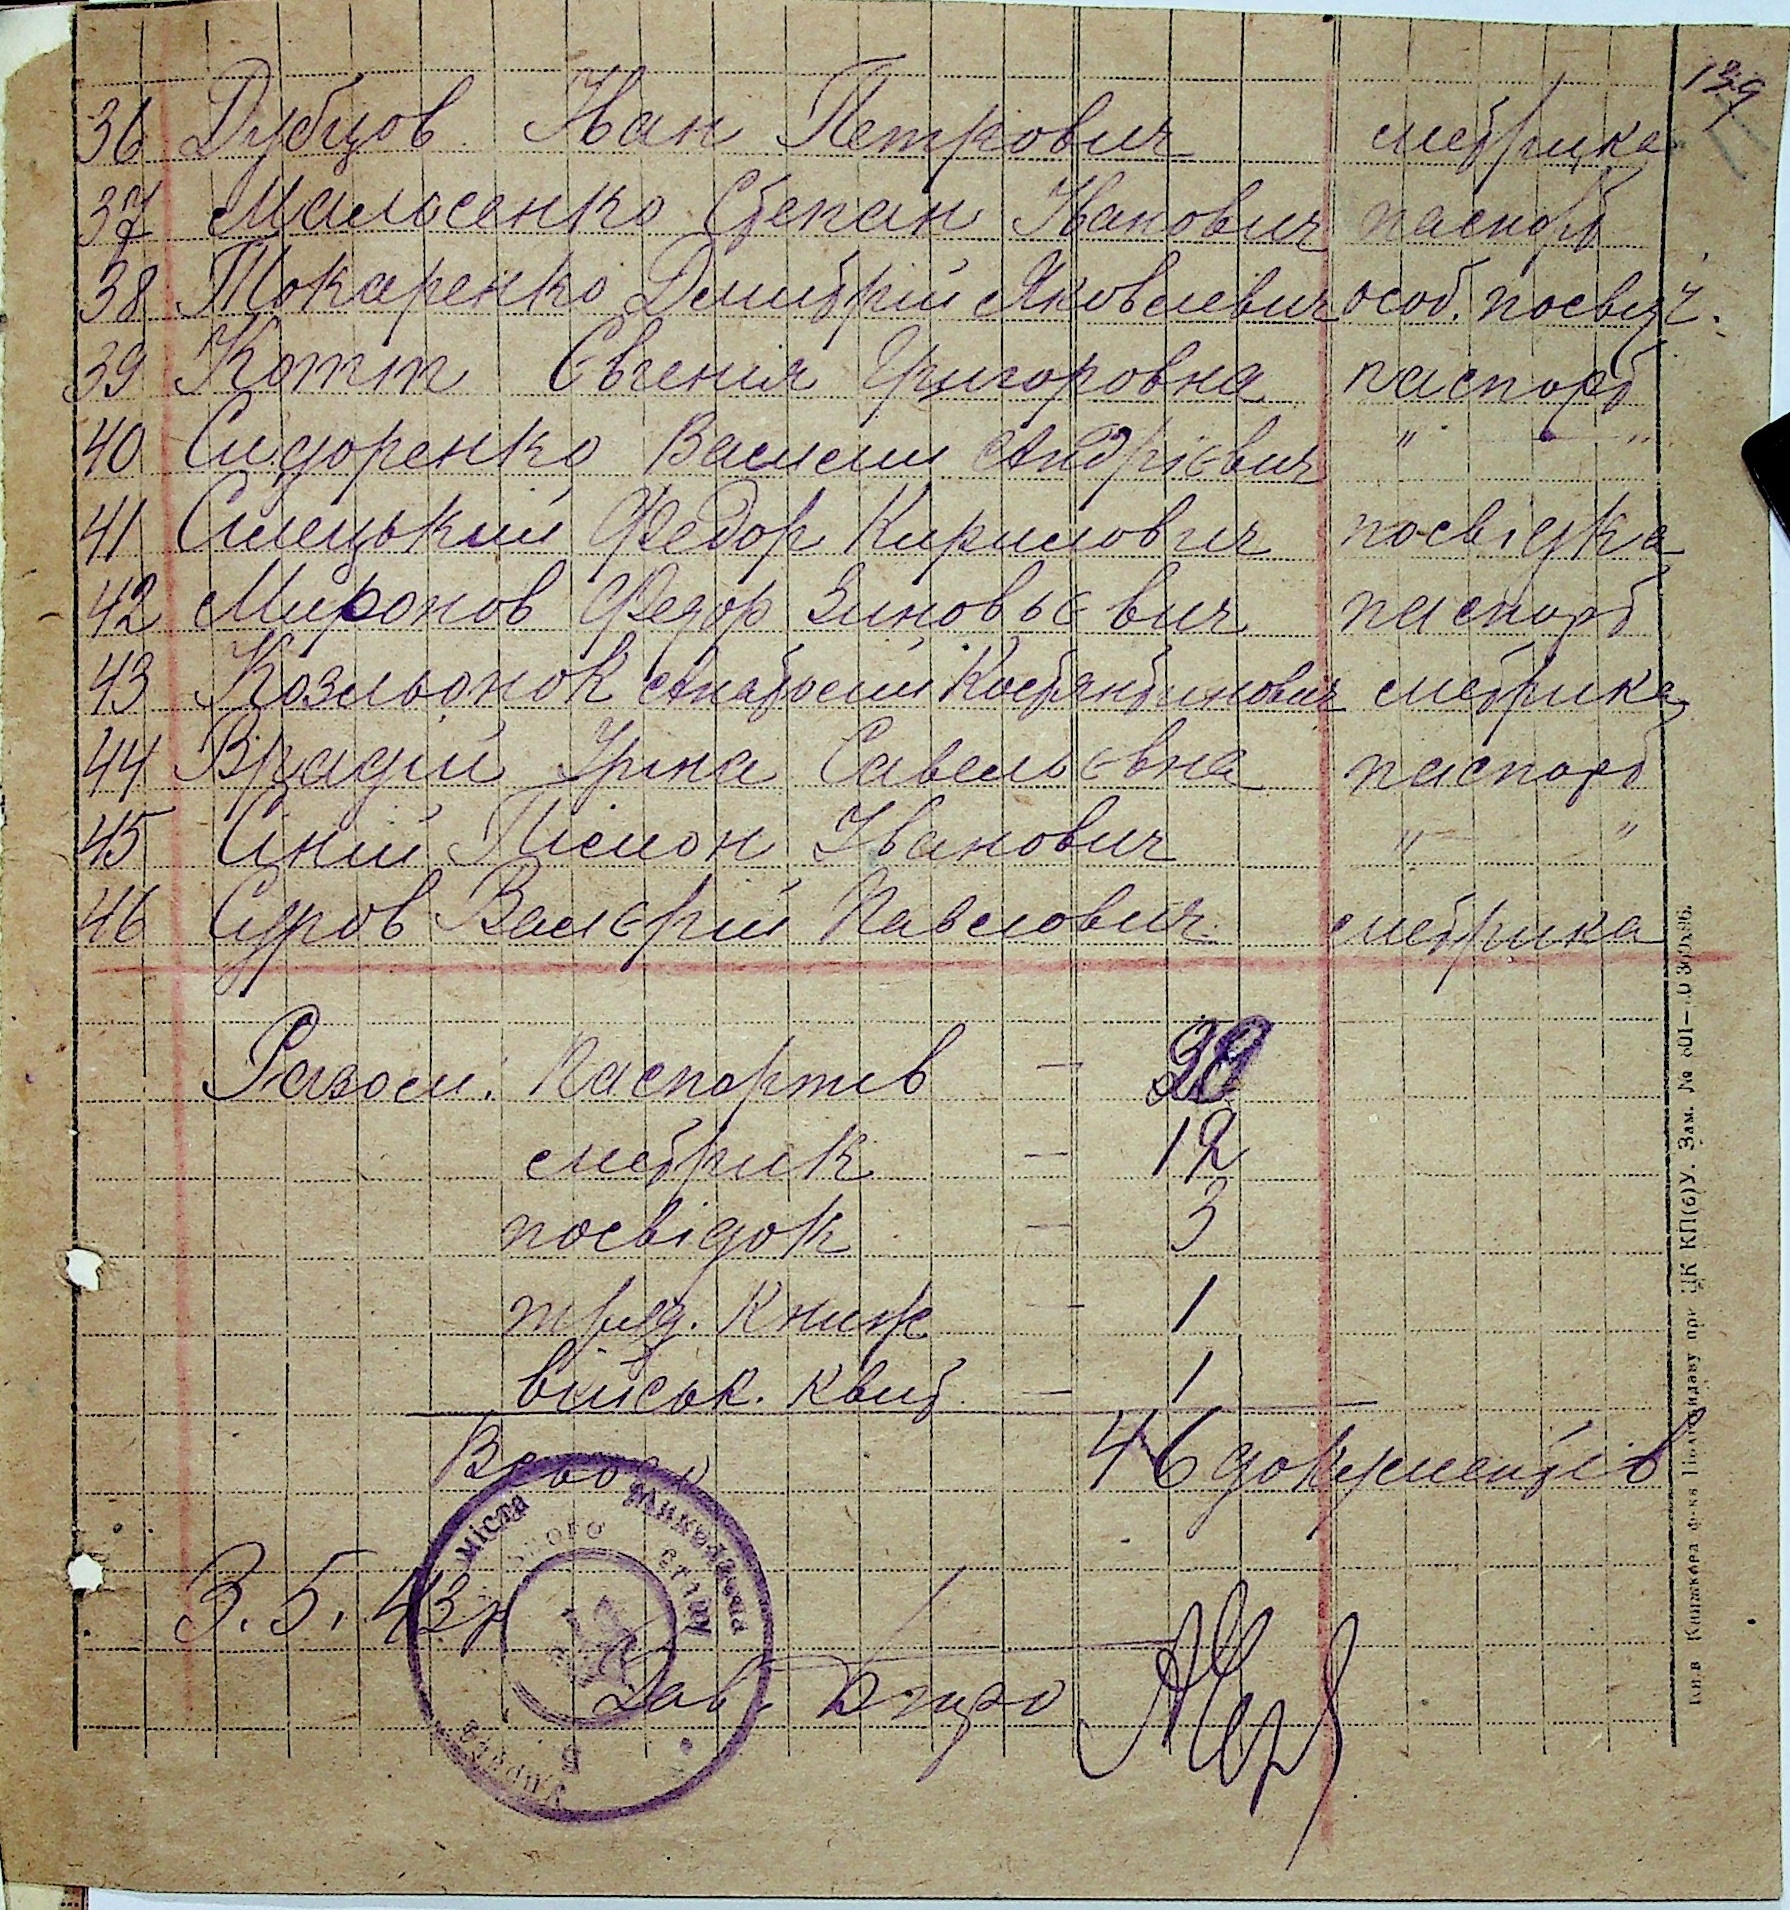 139
36 Дубцов Іван Петрович метрика
37 Мальсенко Степан Іванович паспорт
38 Токаренко Дмитрій Яковлевич особ. посвід.
39 Котт Євгенія Григоровна паспорт
40 Сидоренко Василий Андрієвич " — "
41 Сілецький Федор Кирилович посвідка
42 Миронов Федор Зиновьєвич паспорт
43 Козльонок Анатолий Костянтинович метрика
44 Врадій Ірина Савельєвна паспорт
45 Сіній Пімон Іванович " "
46 Суров Валєрій Павлович метрика
Разом: паспортів –
метрик – 12
посвідок – 3
труд. книж – 1
військ. квит – 1
Всього 46 документів
міста Миколаєва
Управа
3.5.43р
Зав. Бюро